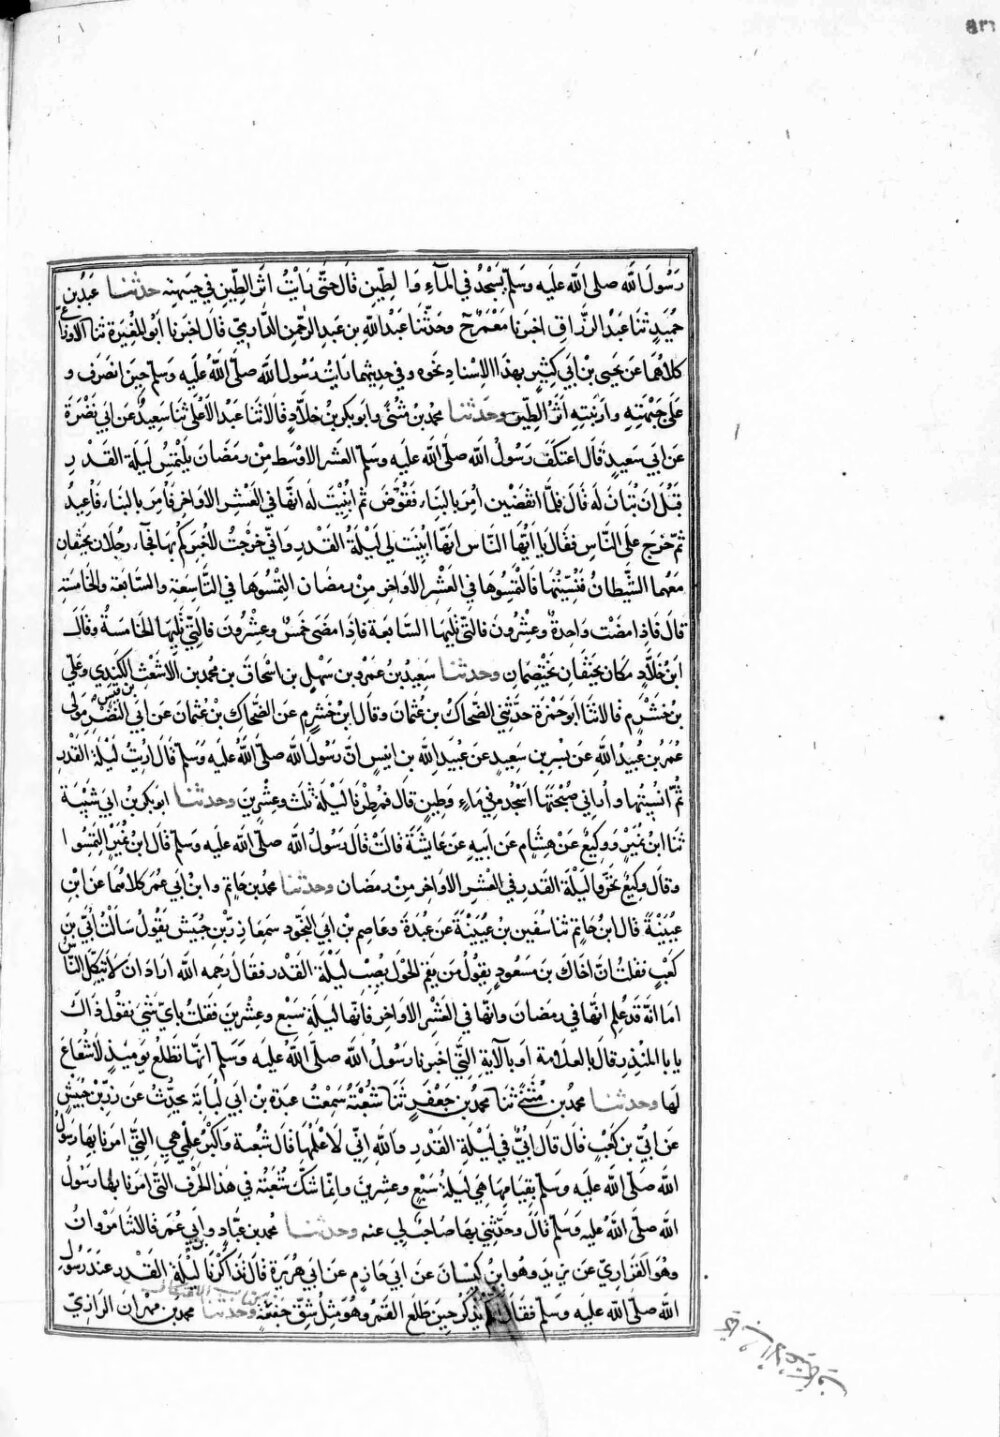 رَسُولَ اللَّه صلى اللَّه عليه وسَلّم يَسْجُدُ في المآءِ وَالطِينِ قالَ حتَّى رَأيْتُ اثَرَ الطِّينِ في جَبهتِه حدثنا عَبْدُ بن
حُمَيدٍ ثنا عَبْدُ الرَّزاق اخبرنا مَعْمَرٌ ح وحَدَّثنا عَبْدُ اللَّهِ بن عبدِ الرّحمٰنِ الدَّارِمِيّ قال اخبرَنا ابُو المُغِيرَة ثنا الاوزاعيُّ
كلاهُما عَن يَحيَى بن اَبي كثِيرٍ بهذا الاسْنادِ نحوه وفي حديثِهما رَايْتُ رَسُولَ اللَّه صَلّى اللَّهُ عليه وسلّم حِينَ انصَرَفَ و
عَلى جَبْهَتِهِ وارنَبَتِه أثَرُ الطِّين وحَدثنا محمد بن مُثنَّى وابو بكر بن خلَّادٍ قالا ثنا عَبْدُ الاَعْلَى ثنا سَعِيدٌ عَن ابي نَضْرَةَ
عَن ابي سَعيدٍ قال اعتكفَ رَسُولُ اللَّه صلّى اللَّه عليه وسلّم العَشرَ الاوْسَط مِن رَمَضَان يَلْتمِسُ ليلَةَ القدرِ
قَبْلَ ان تُبَانَ لَه قَالَ فَلمَّا انقَضَيْنَ أمَرَ بالبِنَاءِ فَقُوِّضَ ثُم اُبِينَتْ لَه انّهَا في العَشْرِ الاوَاخِرِ فَأمرَ بالبنَاءِ فَاُعِيدَ
ثمّ خَرَجَ علَى النَّاسِ فقالَ يا ايُّهَا النّاسُ انّهَا اُبِينَتْ لِي لَيْلَةُ القَدرِ وانّي خَرَجْتُ لاُخبرَكُمْ بهَا فجآء رجُلانِ يَحْتقّانِ
مَعَهُما الشَّيطانُ فَنُسِّيتُهَا فَالتَمِسُوهَا في العَشْرِ الاوَاخِرِ مِنْ رمضَانَ التمِسُوهَا في التَّاسِعَةِ والسّابعَةِ والخامسَةِ
قالَ فَاذَا مضَتْ وَاحِدةٌ وعِشْرُونَ فالتي تَلِيهَا السّابعَة فاذا مضَى خَمسٌ وعشْرُونَ فالتي تَلِيهَا الخَامسَةُ وقالَ
ابنُ خلَّادٍ مكانَ يَحْتقّانِ يَخْتَصِمانِ وحدثنا سَعِيدُ بن عَمْرِو بن سَهلِ بن اسْحَاقَ بن محمد بن الاشْعَثِ الكِندِيّ وعَليّ
بن خَشْرَمٍ قالا ثنا ابو ضَمْرَة حَدَّثني الضّحاكُ بن عُثمانَ وقالَ ابنُ خَشْرَمٍ عنِ الضّحاكِ بن عُثمَانَ عَن ابي النّضْرِ مَولَى
عُمَرَ بن عُبيدِ اللَّهِ عَن بُسْرِ بن سَعِيدٍ عَن عَبدِ اللَّهِ بن انيسٍ انّ رَسُولَ اللَّه صلى اللَّهُ عليه وسَلّم قَالَ اُرِيتُ لَيلَةَ القَدْرِ
ثمّ اُنْسِيتُهَا واُراني صُبْحَتَهَا اَسْجُدُ في مَاءٍ وَطِينٍ قالَ فَمُطِرْنَا لَيلَةَ ثَلثٍ وعِشْرِينَ وحدثنا ابو بكر بن ابي شَيْبَة
ثنا ابنُ نُمَيْرٍ وَوَكِيعٌ عَنْ هِشامٍ عَن ابيهِ عَن عايشَة قالت قال رَسُولُ اللَّه صلّى اللَّه عليه وسلّم قال ابنُ نُمَيْرٍ التمِسُوا
وقال وَكِيعٌ تحَرَّوا لَيلَة القدرِ في العَشرِ الاواخِرِ مِن رمضان وحدثنا محمد بن حاتِمٍ وابن ابي عُمَرَ كلاهُمَا عَن ابنِ
عُيَيْنَة قال ابنُ حاتم ثنا سُفين بن عُيَيْنَةَ عَن عَبْدَةَ وعَاصِم بن ابي النَّجُودِ سَمِعَا زِرَّ بن حُبَيش يقُولُ سَألْتُ اُبَيَّ بن
كَعبٍ فقلتُ اِنّ اخاكَ بن مَسْعُودٍ يقُولُ مَن يقمِ الحَوْلَ يُصِبْ لَيْلَةَ القَدْرِ فقالَ رحمه اللَّه ارادَ ان لا يَتّكِلَ النّاسُ
اما انّه قَد عَلِمَ انّهَا في رمضَان وانّها في العَشْرِ الاوَاخِرِ وانّها لَيلَةُ سَبْعٍ وعِشرِينَ فقلتُ بايّ شَيءٍ تقُولُ ذَاكَ
يا ابا المُنْذِرِ قالَ بالعلَامَةِ اَو بالآيَةِ الّتي اخبَرنا رَسُولُ اللَّه صلّى اللَّهُ عليه وسَلّم انّها تَطلُعُ يوميذٍ لاشُعَاعَ
لها وحدثنا محمد بن مُثنّى ثنا محمد بن جَعْفَرٍ ثنا شُعْبَةُ سَمِعْتُ عبدَة بن ابي لُبَابَة يحدِّثُ عَن زِرِّ بن حُبَيْشٍ
عَن اُبَيِّ بن كعْبٍ قال قالَ اُبَيٌّ في لَيْلَةِ القَدْرِ واللَّهِ إنِّي لاَعْلَمُهَا قال شُعبةُ واكبَرُ عِلمِي هي الّتي امَرنا بهَا رَسُولُ
اللَّه صَلّى اللَّهُ عليه وَسَلّم بقِيَامِهَا هِيَ لَيلَةُ سَبْعٍ وعشرِينَ وانّما شكَّ شُعْبَةُ في هذَا الحَرْفِ الّتي امَرَنا بهَا رسُولُ
اللَّه صلى اللَّهُ عليه وَسَلّم قالَ وحَدَّثني بهَا صَاحبٌ لِي عنه وحدثنا محمد بن عَبَّادٍ وابن ابي عُمَرَ قالا ثنا مَرْوانُ
وهُوَ الفَزَارِيّ عَن يزيدَ وهُو ابنُ كَيْسَانَ عَن ابي حَازِمٍ عَن ابي هُرَيرَة قالَ تذَاكَرْنا لَيْلَةَ القَدْرِ عندَ رَسُولِ
اللَّه صلّى اللَّهُ عليه وسلّم فقالَ ايّكُم يَذْكُرُ حينَ طَلَعَ القَمَرُ وَهُوَ مِثلُ شِقِّ جَفْنَةٍ وحَدثنا محمد بن مِهْرَانَ الرَّازِيّ